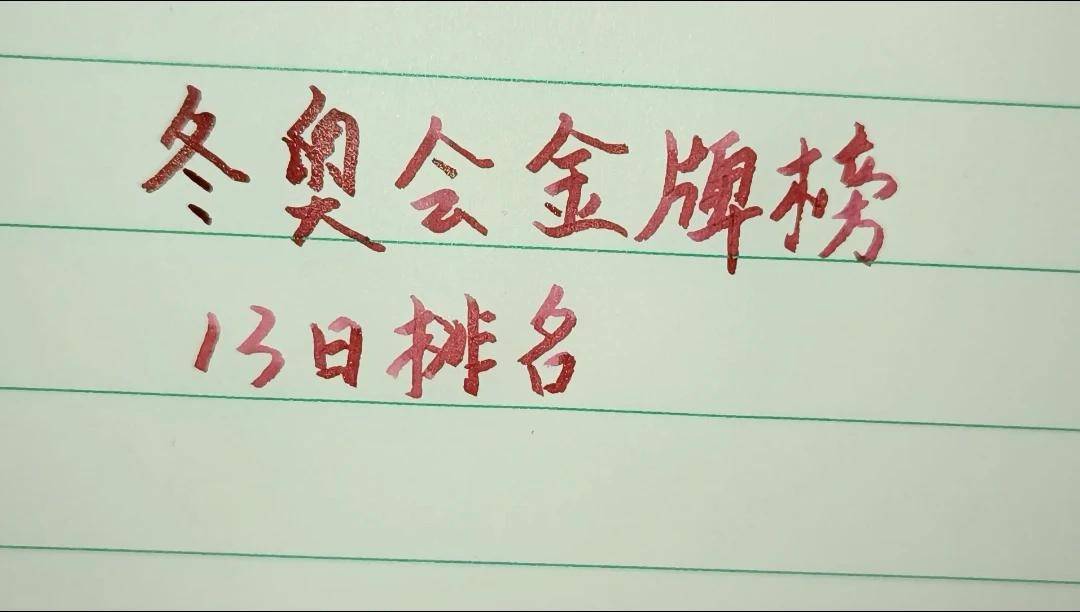 冬奥会金牌榜
13日排名